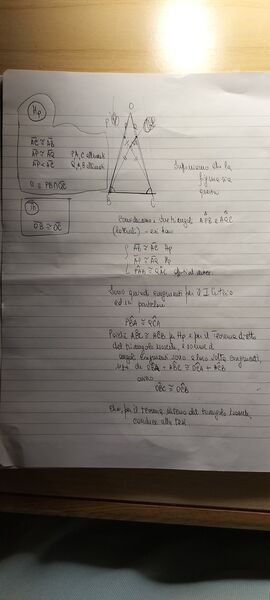 Hp
AC ≅ AB
AP ≅ AQ P,A,C allineati
AP < AC Q,A,B allineati
O = PB ∩ QC
Th
OB ≅ OC
O
P
Q
A
B
C
Supponiamo che la
figura sia
questa
Consideriamo i due triangoli APB e AQC
essi hanno
AB ≅ AC Hp
AP ≅ AQ Hp
PAB ≅ QAC
Sono quindi congruenti per il I Criterio
ed in particolare
PBA ≅ QCA
Poiché ABC ≅ ACB per Hp e per il Teorema diretto
del triangolo isoscele, e somme di
angoli congruenti sono a loro volta congruenti,
OBA + ABC ≅ OCA + ACB
ovvero
OBC ≅ OCB
che, per il teorema inverso del triangolo isoscele,
conduce alla tesi